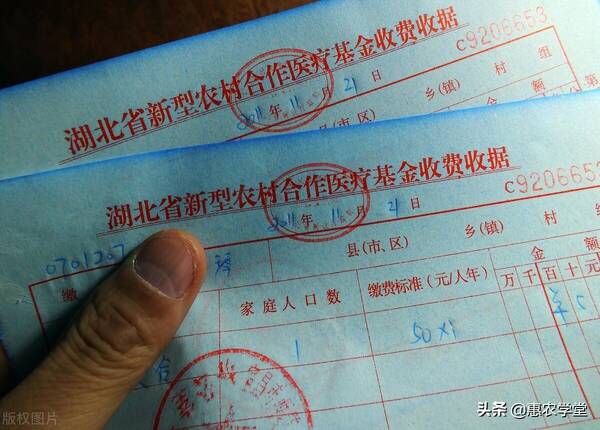 湖北省新型农村合作医疗基金收费收据
C9206653
2011年11月21日
县(市、区) 乡(镇) 村 组
金额
湖北省新型农村合作医疗基金收费收据
2011年11月21日
0701207
县(市、区) 乡(镇) 村 组
缴 家庭人口数 缴费标准(元/人年) 金额
万千百十元
1 50×1
版权图片
头条 @惠农学堂